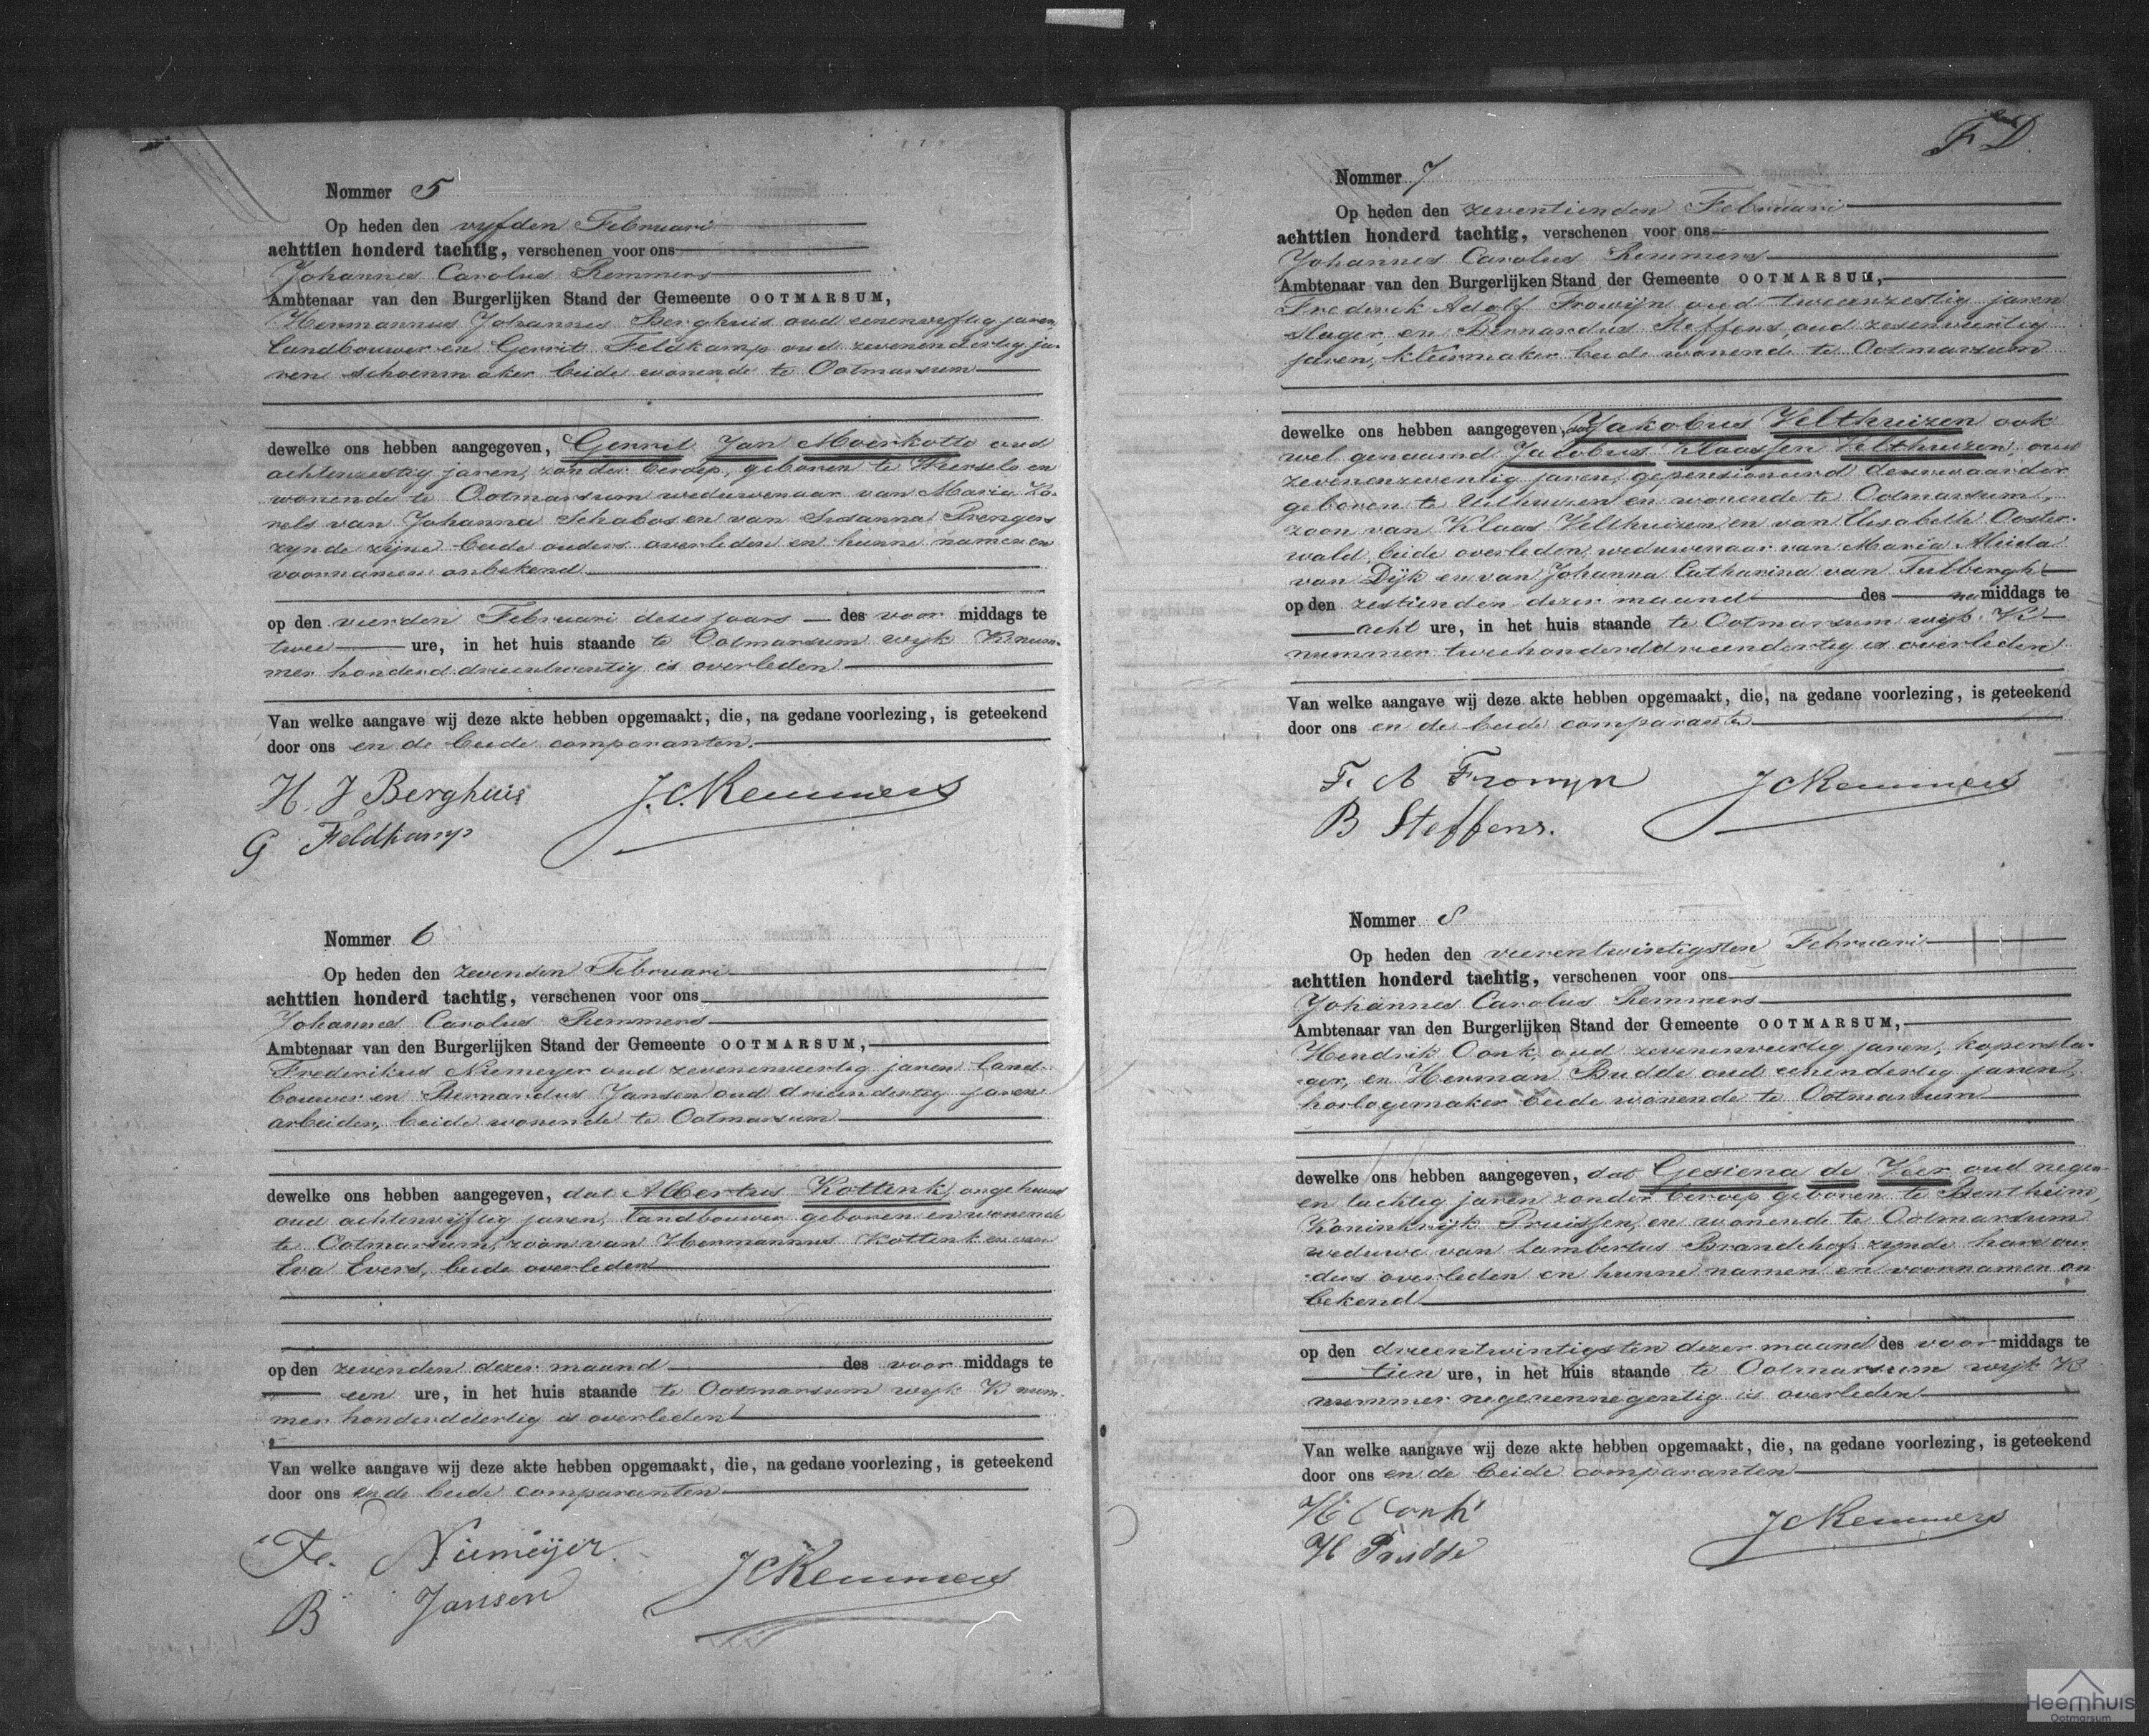 Nommer 5
Op heden den vyfden Februari
achttien honderd tachtig, verschenen voor ons
Johannes Carolus Remmers
Ambtenaar van den Burgerlijken Stand der Gemeente OOTMARSUM,
Hermannus Johannes Berghuis oud eenenvyftig jaren,
landbouwer en Gerrit Feldkamp oud zevenendertig ja-
ren schoenmaker beide wonende te Ootmarsum
dewelke ons hebben aangegeven, Gerrit Jan Moerkotte oud
achtenzestig jaren, zonder beroep, geboren te Weerselo en
wonende te Ootmarsum weduwenaar van Maria
van Johanna Schabos en van Susanna Prenger
zynde zijne beide ouders overleden en hunne namen en
voornamen onbekend
op den vierden Februari dezes jaars des voor middags te
twee ure, in het huis staande te Ootmarsum wyk B num-
mer honderd drieentwintig is overleden
Van welke aangave wij deze akte hebben opgemaakt, die, na gedane voorlezing, is geteekend
door ons en de beide comparanten.
H. J Berghuis J.C. Remmers
G Feldkamp
Nommer 6
Op heden den zevenden Februari
achttien honderd tachtig, verschenen voor ons
Johannes Carolus Remmers
Ambtenaar van den Burgerlijken Stand der Gemeente OOTMARSUM,
Frederikus Niemeyer oud zevenenveertig jaren land-
bouwer en Bernardus Jansen oud drieendertig jaren
arbeider, beide wonende te Ootmarsum
dewelke ons hebben aangegeven, dat Albertus Kottink, ongehuwd
oud achtenvijftig jaren, landbouwer geboren en wonende
te Ootmarsum, zoon van Hermannus Kottink en van
Eva Evers, beide overleden
op den zevenden dezer maand des voor middags te
een ure, in het huis staande te Ootmarsum wyk B num-
mer honderddertig is overleden
Van welke aangave wij deze akte hebben opgemaakt, die, na gedane voorlezing, is geteekend
door ons en de beide comparanten
Fr. Niemeijer
B Jansen JC Remmers
F D.
Nommer 7
Op heden den zeventienden Februari
achttien honderd tachtig, verschenen voor ons
Johannes Carolus Remmers
Ambtenaar van den Burgerlijken Stand der Gemeente OOTMARSUM,
Frederik Adolf Frowijn oud tweeenzestig jaren
slager, en Bernardus Steffens, oud zesenveertig
jaren, kleermaker beide wonende te Ootmarsum
dewelke ons hebben aangegeven, dat Jakobus Velthuizen ook
wel genaamd Jacobus Klaassen Velthuizen, oud
zevenenzeventig jaren, gepensioneerd deurwaarder
geboren te Uithuizen en wonende te Ootmarsum,
zoon van Klaas Velthuizen en van Elisabeth Ooster-
wald, beide overleden, weduwenaar van Maria Aleida
van Dijk en van Johanna Catharina van Tulbergh
op den zestienden dezer maand des na middags te
acht ure, in het huis staande te Ootmarsum wijk B
nummer tweehonderddrieendertig is overleden
Van welke aangave wij deze akte hebben opgemaakt, die, na gedane voorlezing, is geteekend
door ons en de beide comparanten
F. A Frowyn JC Remmers
B Steffens.
Nommer 8
Op heden den vierentwintigsten Februari
achttien honderd tachtig, verschenen voor ons
Johannes Carolus Remmers
Ambtenaar van den Burgerlijken Stand der Gemeente OOTMARSUM,
Hendrik Oonk, oud zevenenveertig jaren, kopersla-
ger, en Herman Budde oud eenendertig jaren,
horlogemaker beide wonende te Ootmarsum
dewelke ons hebben aangegeven, dat Gesiena de Veer oud negen-
en tachtig jaren zonder beroep geboren te Bentheim,
Koninkrijk Pruissen, en wonende te Ootmarsum
weduwe van Lambertus Brandehof zynde hare ou-
ders overleden en hunne namen en voornamen on-
bekend
op den drieentwintigsten dezer maand des voor middags te
tien ure, in het huis staande te Ootmarsum wijk B
nummer negenennegentig is overleden
Van welke aangave wij deze akte hebben opgemaakt, die, na gedane voorlezing, is geteekend
door ons en de beide comparanten
H Oonk JC Remmers
H Budde
Heemhuis
Ootmarsum